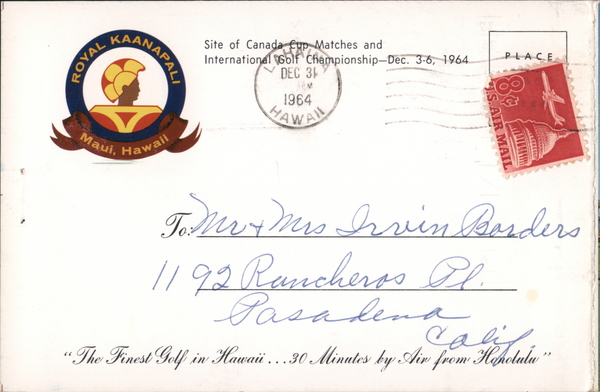 ROYAL KAANAPALI
Maui, Hawaii
Site of Canada Cup Matches and
International Golf Championship—Dec. 3-6, 1964
LAHAINA
DEC 31
1964
HAWAII
PLACE
8¢
U.S. AIR MAIL
To: Mr & Mrs Irvin Borders
1192 Rancheros Pl.
Pasadena
Calif.
"The Finest Golf in Hawaii...30 Minutes by Air from Honolulu"